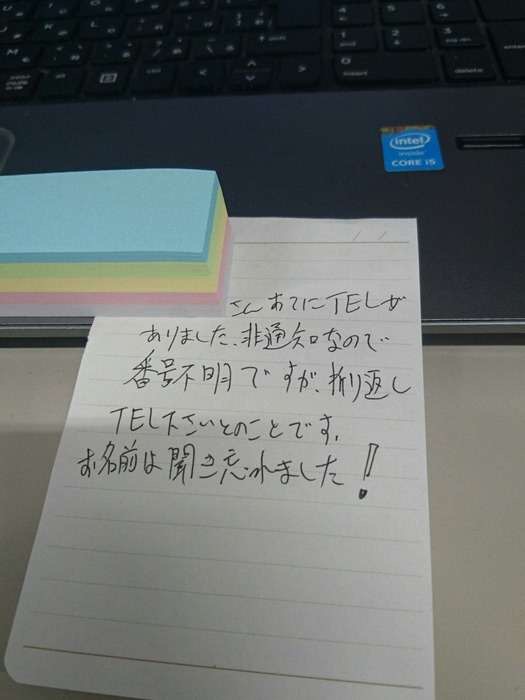 intel
inside
CORE i5
delete
さんあてにTELが
ありました、非通知なので
番号不明ですが、折り返し
TEL下さいとのことです。
お名前は聞き忘れました!